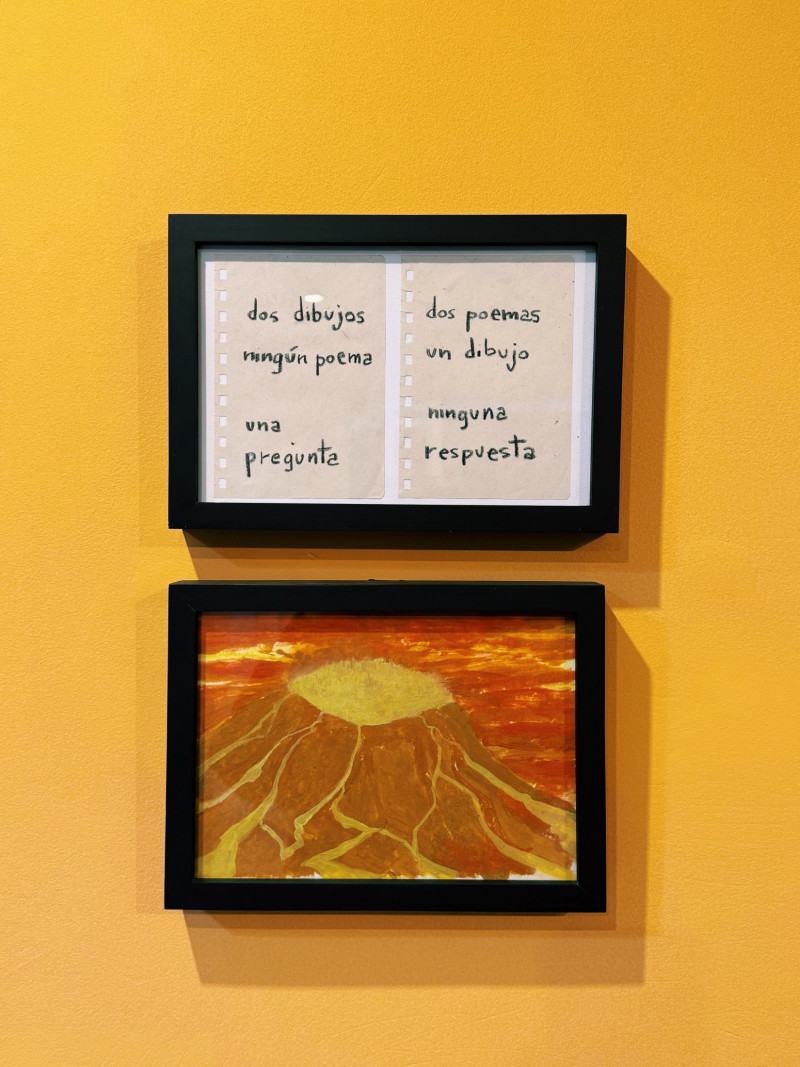 dos dibujos
ningún poema
una
pregunta
dos poemas
un dibujo
ninguna
respuesta